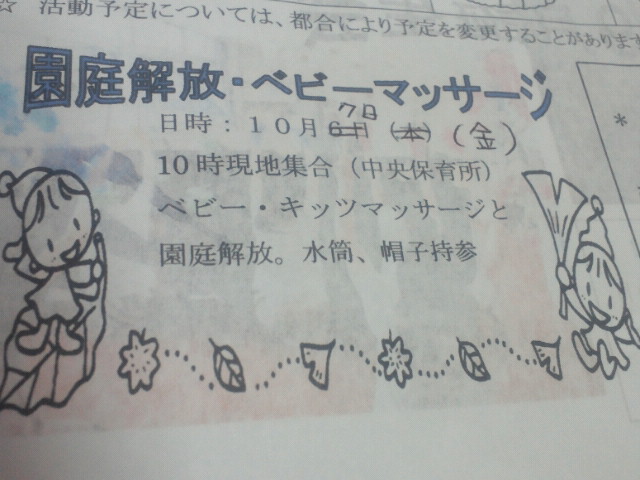 ☆ 活動予定については、都合により予定を変更することがあります
園庭解放・ベビーマッサージ
7日
日時：１０月6日（木）（金）
10時現地集合（中央保育所）
ベビー・キッツマッサージと
園庭解放。水筒、帽子持参
*